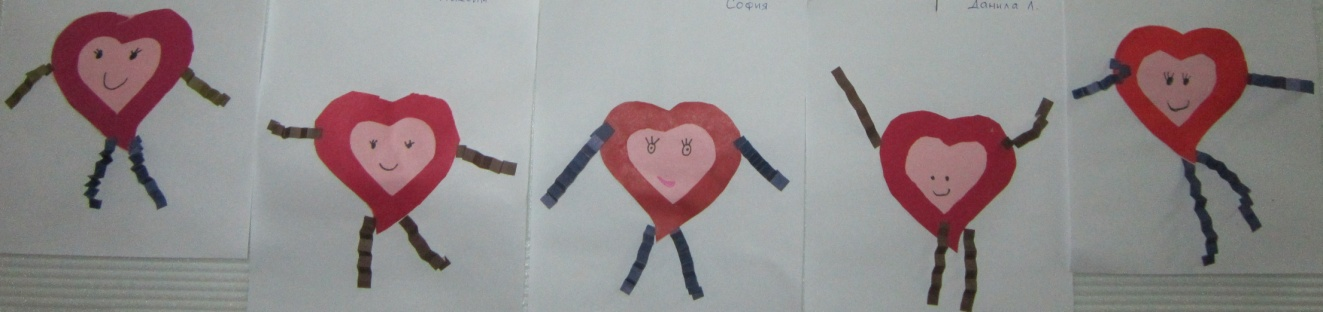 София
Данила Л.